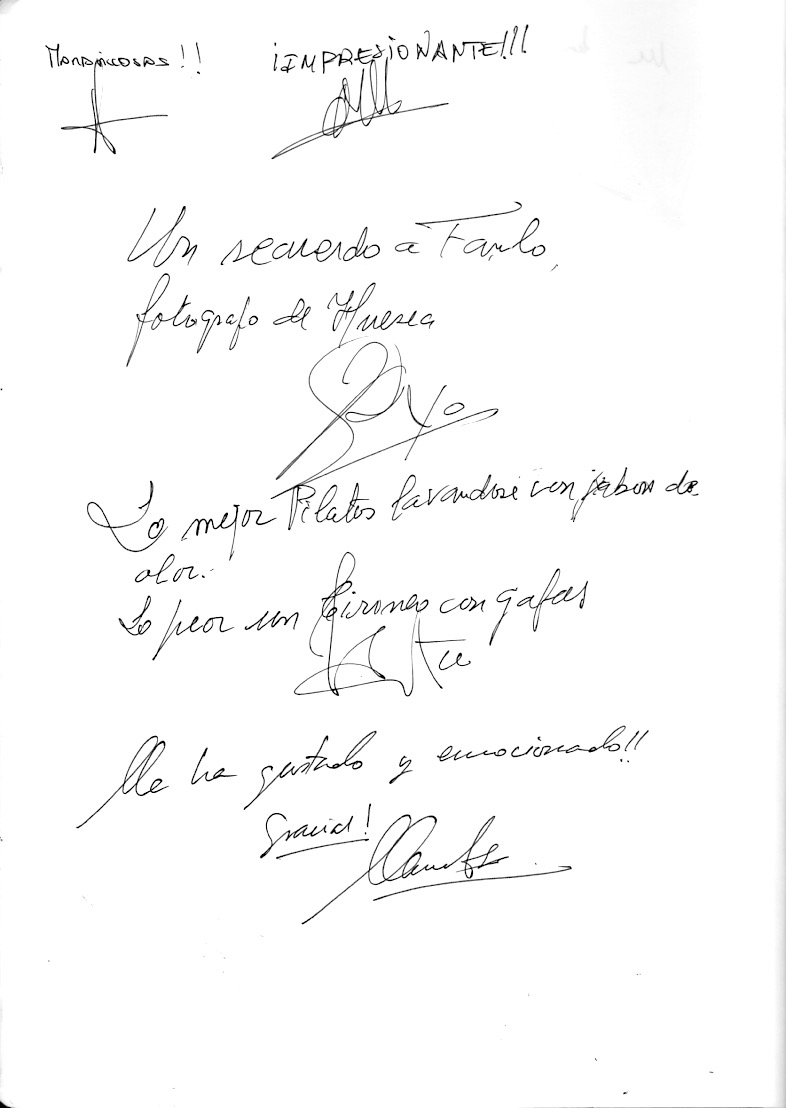 MARAVILLOSAS!! ¡IMPRESIONANTE!!!
Un recuerdo a Fanlo,
fotografo de Huesca
Lo mejor Pilatos lavandose con jabon de
olor.
Lo peor un Cironeo con gafas
Me ha gustado y emocionado!!
Gracias!